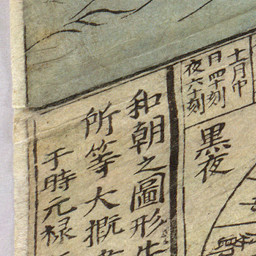 十一月中
日四十刻
夜六十刻
黒夜
和朝之圖形
所等大概
于時元禄